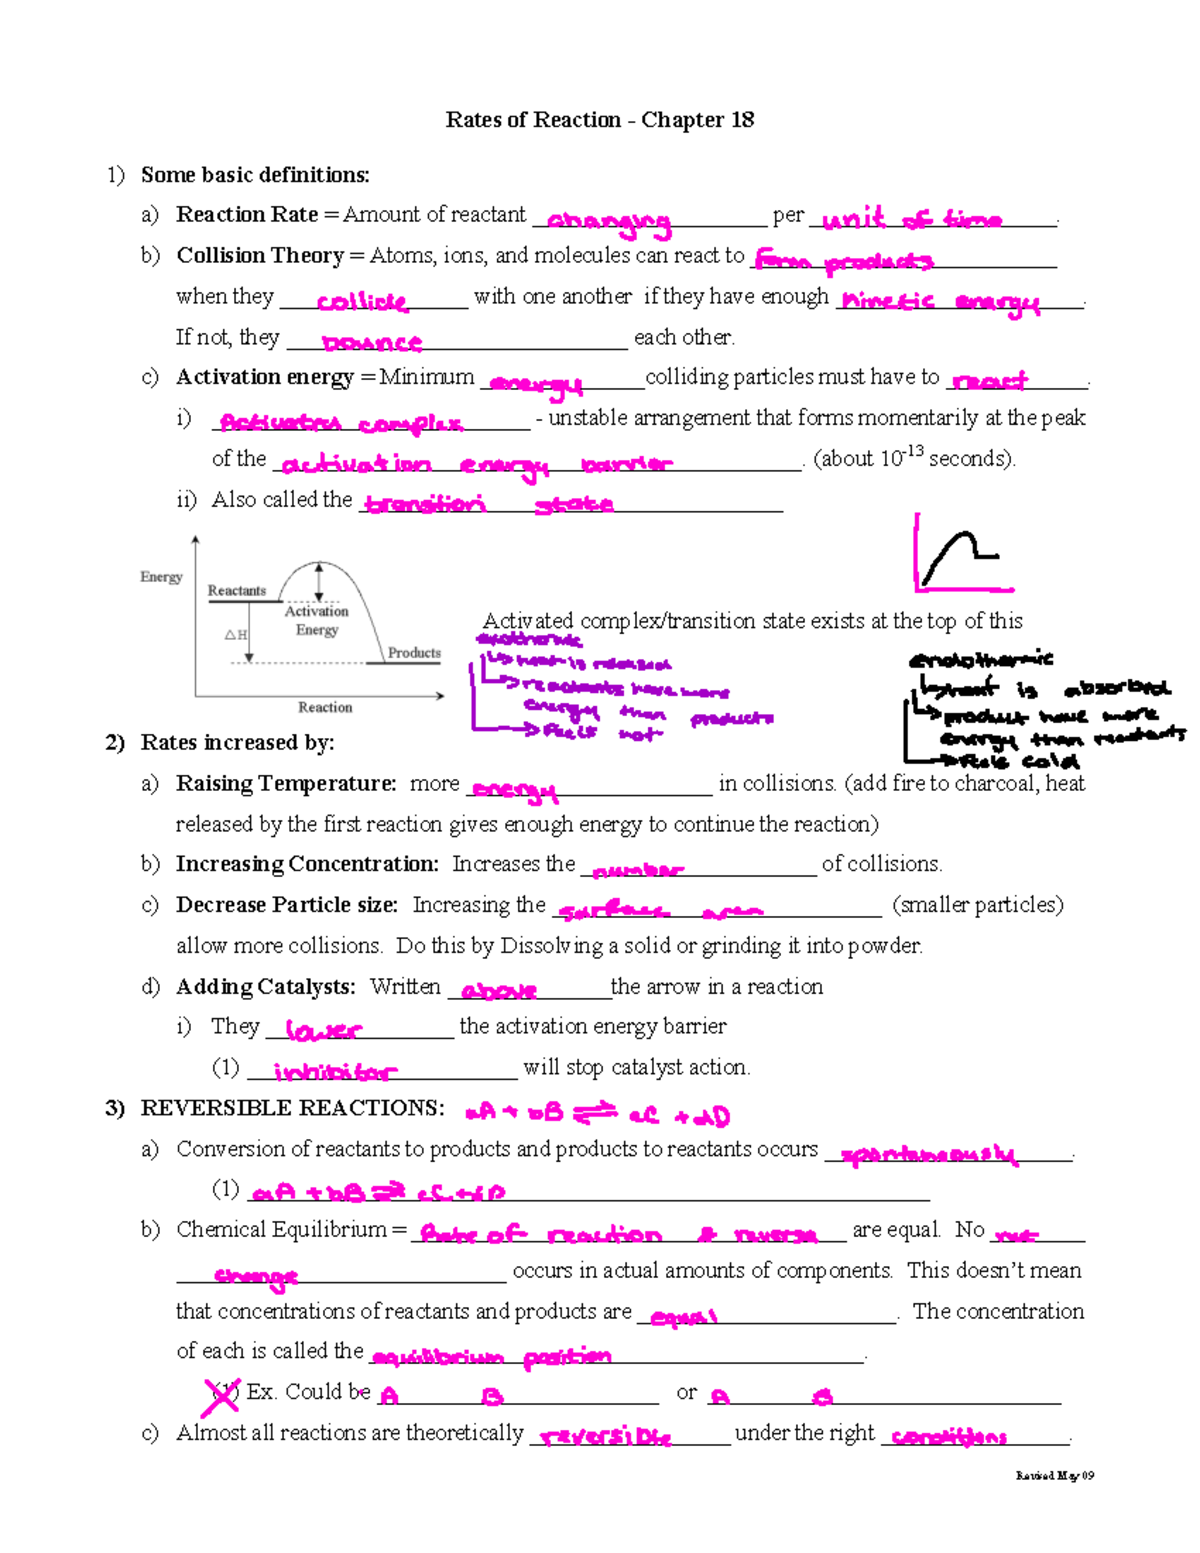 Rates of Reaction - Chapter 18
1) Some basic definitions:
a) Reaction Rate = Amount of reactant changing per unit of time.
b) Collision Theory = Atoms, ions, and molecules can react to form products
when they collide with one another if they have enough kinetic energy.
If not, they bounce each other.
c) Activation energy = Minimum energy colliding particles must have to react.
i) Activated complex - unstable arrangement that forms momentarily at the peak
of the activation energy barrier. (about 10-13 seconds).
ii) Also called the transition state
Energy
Reactants
Activation
Energy
△H
Products
Reaction
Activated complex/transition state exists at the top of this
exothermic
heat is released
reactants have more
energy than products
feels hot
endothermic
heat is absorbed
product have more
energy than reactants
feels cold
2) Rates increased by:
a) Raising Temperature: more energy in collisions. (add fire to charcoal, heat
released by the first reaction gives enough energy to continue the reaction)
b) Increasing Concentration: Increases the number of collisions.
c) Decrease Particle size: Increasing the surface area (smaller particles)
allow more collisions. Do this by Dissolving a solid or grinding it into powder.
d) Adding Catalysts: Written above the arrow in a reaction
i) They lower the activation energy barrier
(1) inhibitor will stop catalyst action.
3) REVERSIBLE REACTIONS: aA + bB ⇌ cC + dD
a) Conversion of reactants to products and products to reactants occurs spontaneously.
(1) aA + bB ⇌ cC + dD
b) Chemical Equilibrium = Rate of reaction & reverse are equal. No net
change occurs in actual amounts of components. This doesn't mean
that concentrations of reactants and products are equal. The concentration
of each is called the equilibrium position.
(1) Ex. Could be A B or A B
c) Almost all reactions are theoretically reversible under the right conditions.
Revised May 09